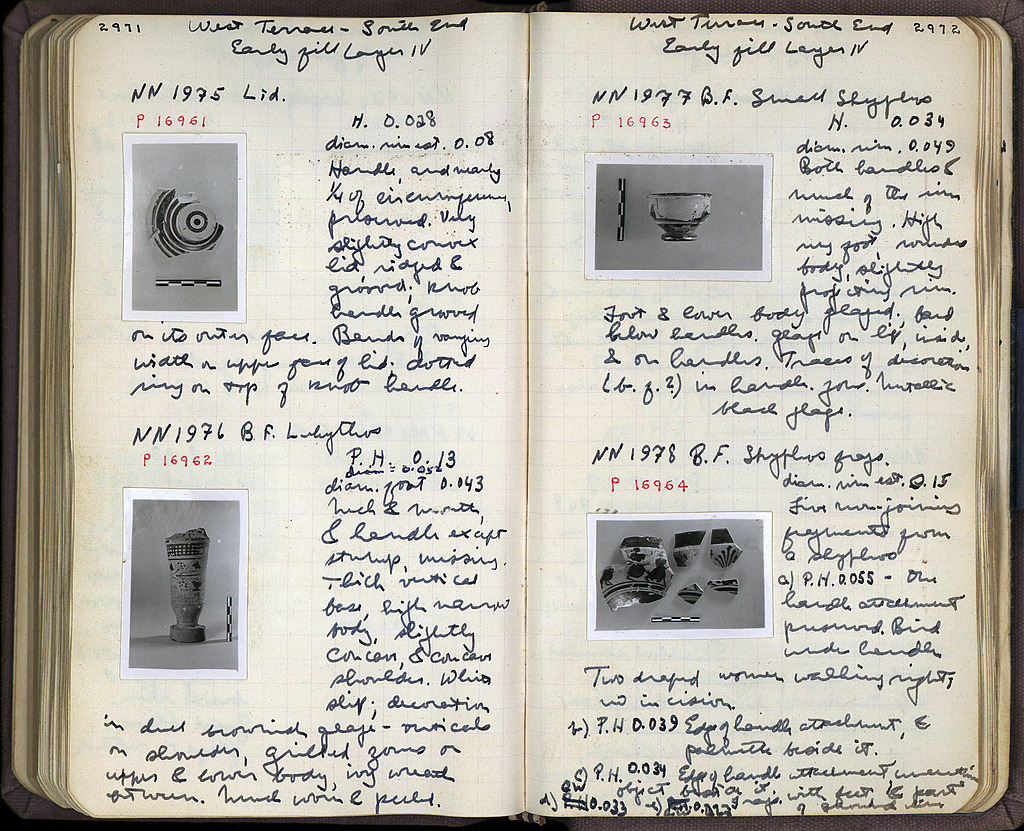 2971
West Terrace - South End
Early fill Layer IV
NN 1975 Lid.
P 16961
H. 0.028
diam. rim est. 0.08
Handle, and nearly
1/4 of circumference,
preserved. Very
slightly convex
lid, ridged &
grooved; knob
handle grooved
on its outer face. Bands of varying
width on upper face of lid; dotted
ring on top of knob handle.
NN 1976 B.F. Lekythos
P 16962
P.H. 0.13
diam. = 0.052
diam. foot 0.043
Neck & mouth,
& handle except
stump, missing.
Thick vertical
base, high narrow
body, slightly
concave, & concave
shoulder. White
slip; decoration
in dull brownish glaze - verticals
on shoulder, grilled zones on
upper & lower body, ivy wreath
between. Much worn & pecked.
West Terrace - South End
2972
Early fill Layer IV
NN 1977 B.F. Small Skyphos
P 16963
H. 0.034
diam. rim. 0.049
Both handles &
much of the rim
missing. High
ring foot, rounded
body, slightly
projecting rim.
Foot & lower body glazed. Band
below handles. glaze on lip, inside,
& on handles. Traces of decoration
(b.f.?) in handle zone. Metallic
black glaze.
NN 1978 B.F. Skyphos frags.
P 16964
diam. rim est. 0.15
Five non-joining
fragments from
a skyphos
a) P.H. 0.055 - One
handle attachment
preserved. Bird
under handle
Two draped women walking right;
no incision
b) P.H 0.039 Edge of handle attachment, &
palmette beside it.
c) P.H. 0.034 Edge of handle attachment
object beside it.
d) 0.033 e) frags. with feet & part
of